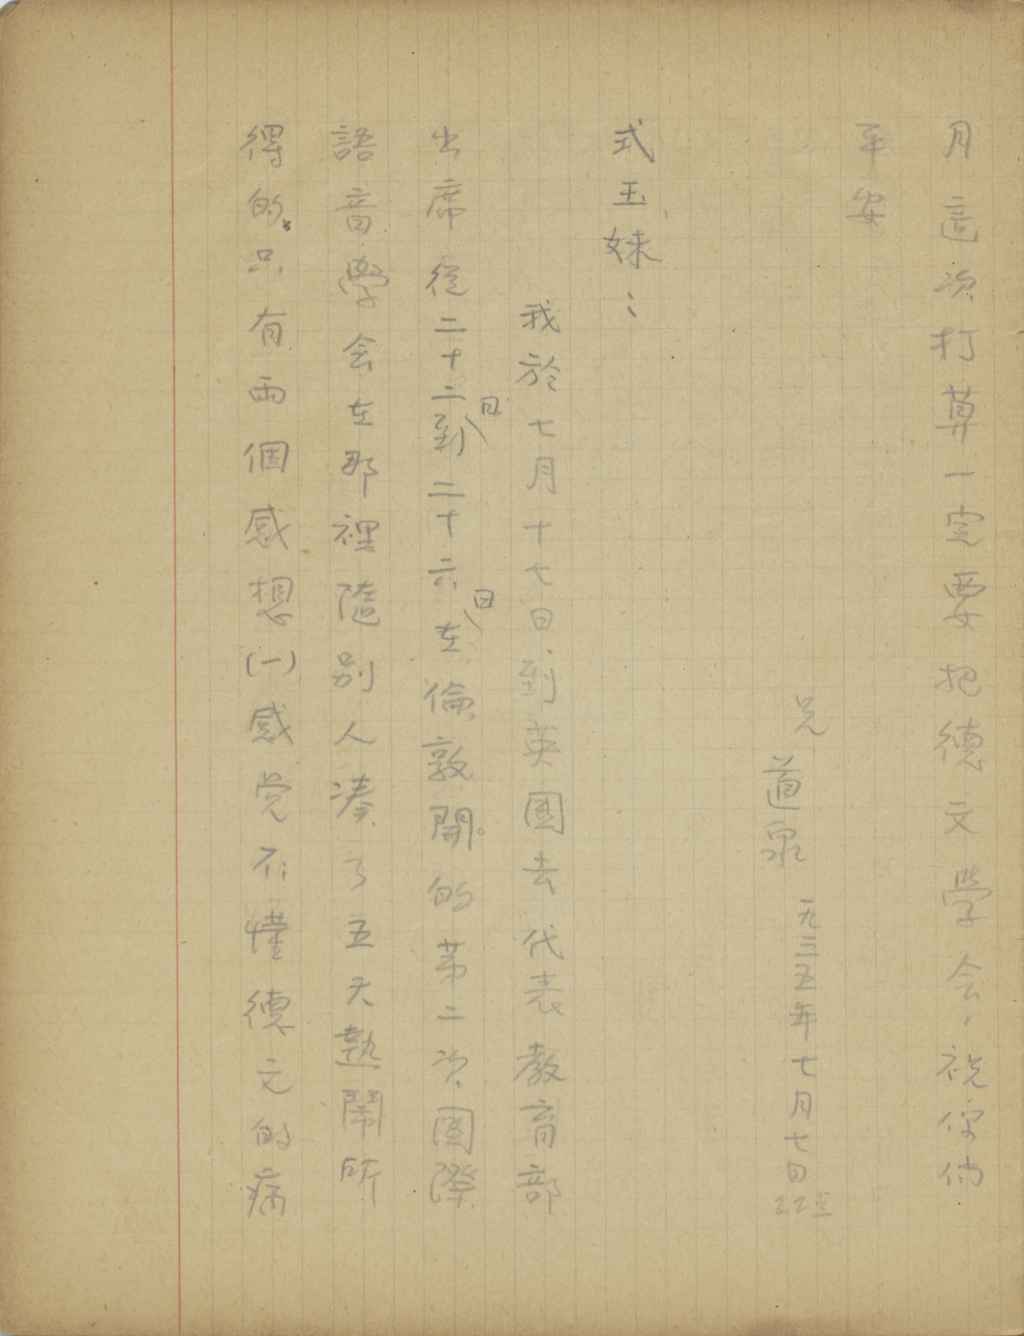 月這次打算一定要把德文學会，祝你們
平安
兄
道泉
一九三五年七月七日
22点
式玉妹：
我於七月十七日到英國去代表教育部
出席從二十二日到二十六日在倫敦開的第二次國際
語音學会在那裡隨别人凑了五天熱鬧所
得的只有兩個感想(一)感覚不懂德文的病